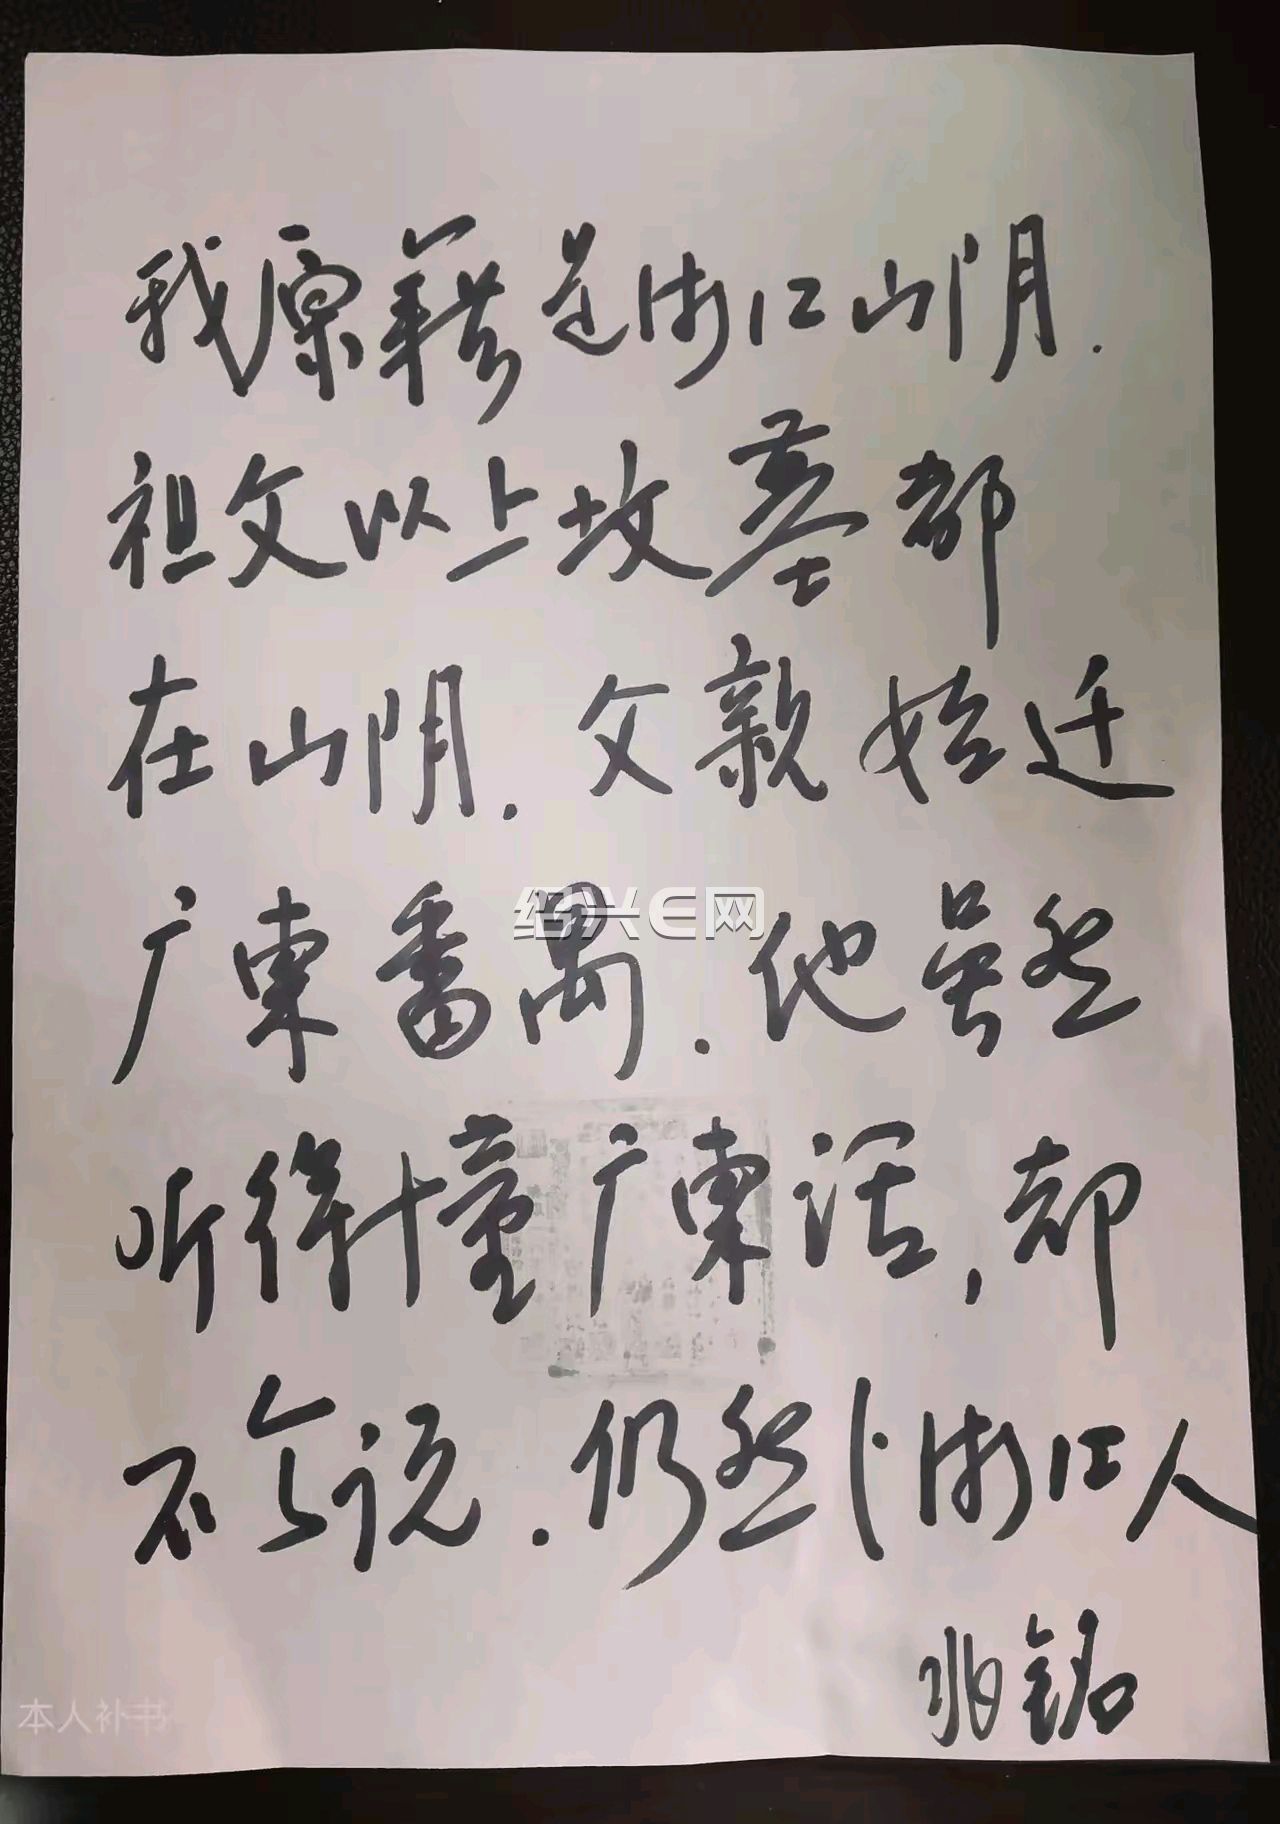 我原籍是浙江山阴.
祖父以上坟墓都
在山阴.父亲始迁
广東番禺.他虽然
绍兴E网
听得懂广東话,却
不会说.仍然浙江人
兆铭
本人补书